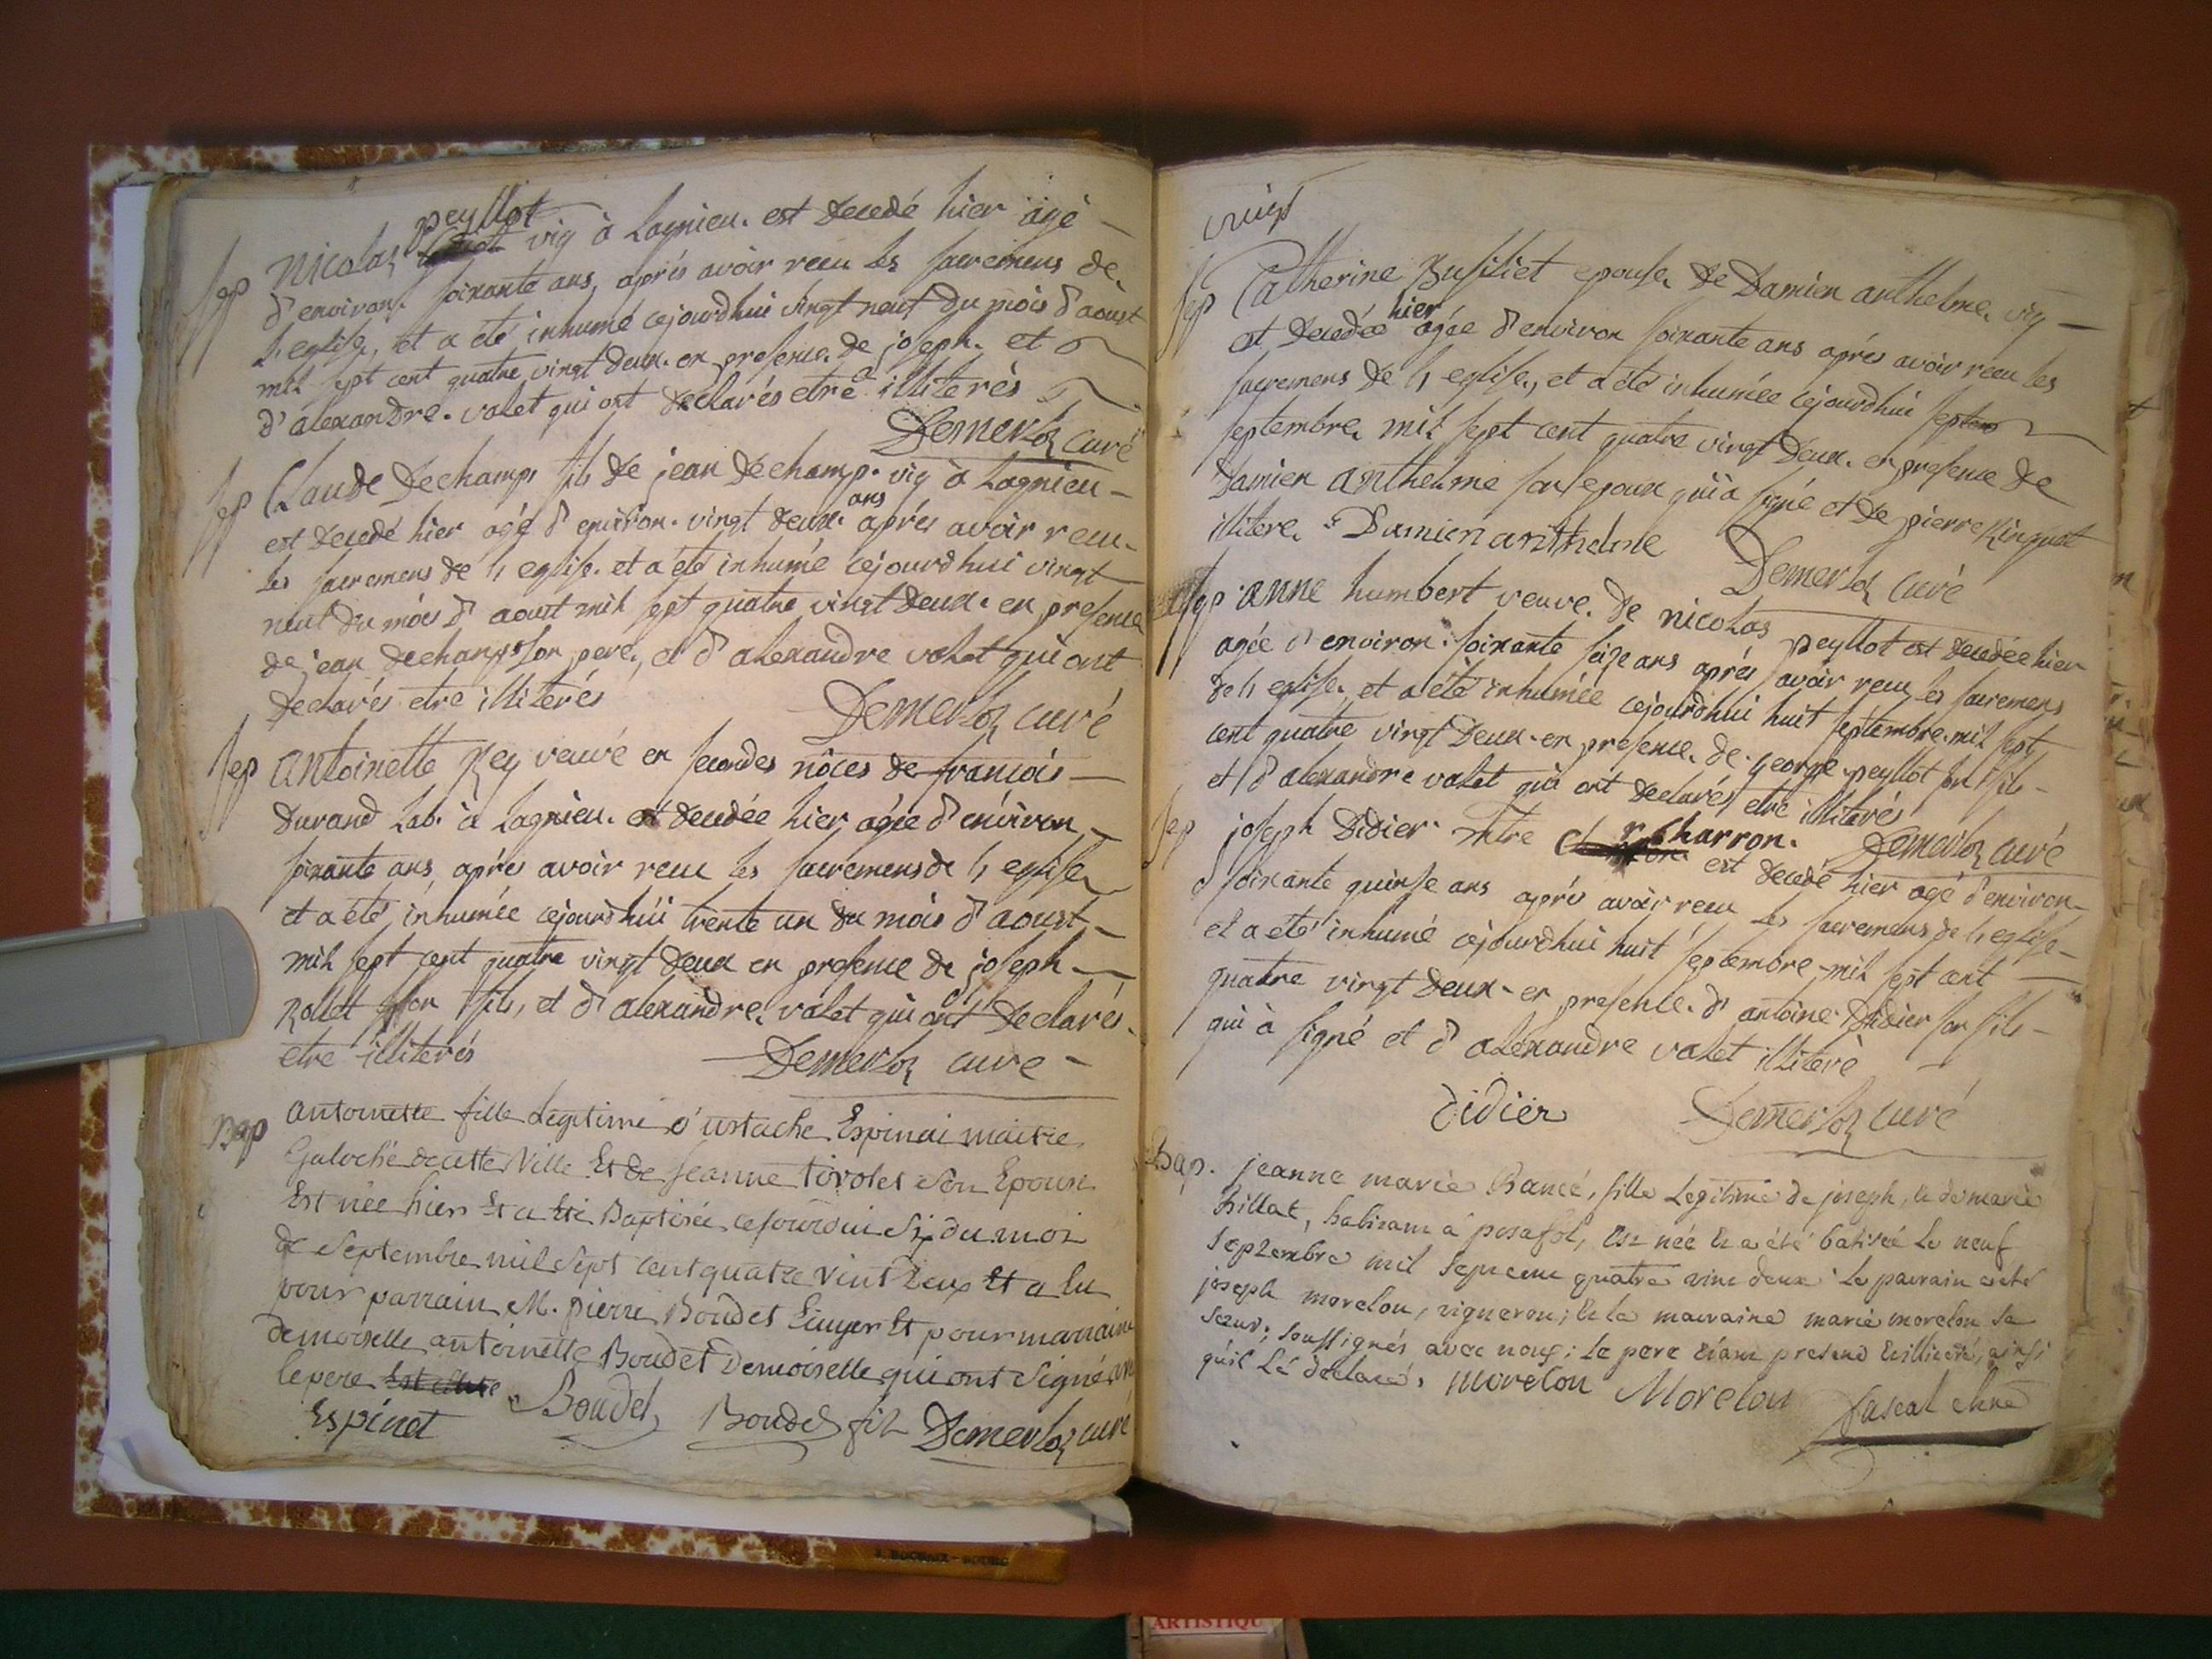 peyllot
Sep Nicolas vig à Lagnieu. est decedé hier agé
d'environ. soixante ans, aprés avoir recu les sacremens de
l'eglise, et a été inhumé cejourdhui vingt neuf du mois d'aoust
mil sept cent quatre vingt deux. en presence de joseph. et
d'alexandre. valet qui ont declarés etre illiterés
Demerloz curé
Sep Claude Dechamps fils de jean dechamp. vig à Lagnieu
ans
est decedé hier agé d'environ. vingt deux. aprés avoir recu
les sacremens de l'eglise. et a été inhumé cejourdhui vingt
neuf du mois d'aoust mil sept quatre vingt deux. en presence
de jean dechamps son pere, et d'alexandre valet qui ont
declarés etre illiterés
Demerloz curé
Sep antoinette Rey veuve en secondes nôces de francois
durand lab. à Lagnieu. est decedée hier agée d'environ
soixante ans, aprés avoir recu les sacremens de l'eglise
et a été inhumée cejourdhui trente un du mois d'aoust
mil sept cent quatre vingt deux en presence de joseph
Rollet son fils, et d'alexandre. valet qui ont declarés.
etre illiterés
Demerloz curé
Bap antoinette fille Legitime d'ustache Espinai maitre
Galoché de cette Ville Et de jeanne tivolet son Epouse
Est née hier Et a été Baptisée cejourdui Six du moi
de septembre mil sept cent quatre vint deux Et a Eu
pour parrain M. pierre Boudet Ecuyer Et pour marraine
demoiselle antoinette Boudet Demoiselle qui ont signé avec
le pere
Espinet Boudet Boudet fils Demerloz curé
vingt
Sep Catherine Bussiliet epouse de Damien anthelme vig
hier
est decedée agée d'environ soixante ans aprés avoir recu les
sacremens de l'eglise, et a été inhumée cejourdhui sept
septembre mil sept cent quatre vingt deux. en presence de
Damien anthelme son epoux qui a signé et de pierre Ringuet
illiteré. Damien anthelme Demerloz curé
Sep anne humbert veuve. de nicolas peyllot est decedée hier
agée d'environ. soixante seize ans aprés avoir recu les sacremens
de l'eglise. et a été inhumée cejourdhui huit septembre mil sept
cent quatre vingt deux. en presence. de george. peyllot son fils
et d'alexandre valet qui ont declarés etre illiterés
Demerloz curé
Sep joseph Didier mtre Charron. est decedé hier agé d'environ
soixante quinse ans aprés avoir recu les sacremens de l'eglise
et a été inhumé cejourdhui huit septembre mil sept cent
quatre vingt deux. en presence. d'antoine Didier son fils
qui à signé et d'alexandre valet illiteré
didier Demerloz curé
Bap. jeanne marie Bancé, fille Legitime de joseph, et de marie
billat, habitans à posafol, est née et a été batisée le neuf
septembre mil septcent quatre vint deux. Le parrain a été
joseph morelon, vigneron; et la marraine marie morelon sa
sœur; soussignés avec nous; le pere étant présent et illiteré, ainsi
qu'il l'a declaré. Morelon Morelon Pascal
ARTISTIQU